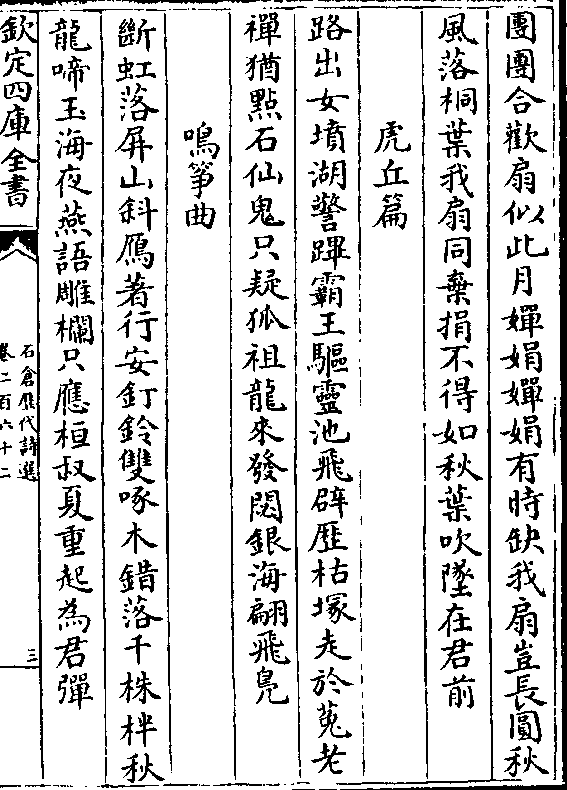 團團合歡扇似此月嬋娟嬋娟有時缺我扇豈長圓秋
風落桐葉我扇同棄捐不得如秋葉吹墜在君前
虎丘篇
路出女墳湖警蹕霸王驅靈池飛辟歴枯塚走於菟老
禪猶點石仙鬼只疑狐祖龍來發閟銀海翩飛鳬
鳴箏曲
斷虹落屏山斜鴈著行安釘鈴雙啄木錯落千株柈秋
龍啼玉海夜燕語雕欄只應桓叔夏重起為君彈
欽定四庫全書
石倉歷代詩選
卷二百六十二
三